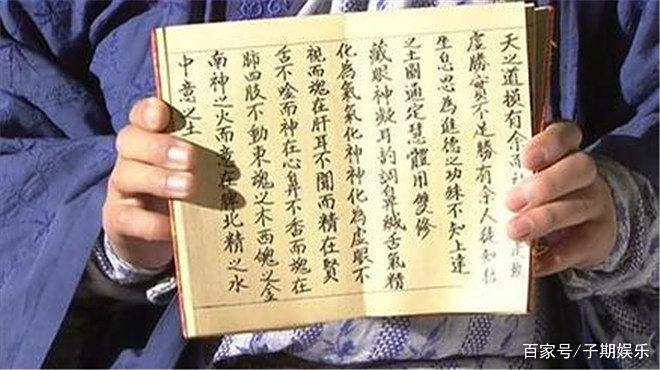 天之道損有余而
虛勝實不足勝有余人徒知枯
坐息思為進德之功殊不知上達
之士圓通定慧體用雙修
藏眼神凝耳韵調鼻緘舌氣精
化為氣氣化神神化為虛眼不
視而魂在肝耳不聞而精在賢
舌不唫而神在心鼻不香而魂在
肺四肢不動東魂之木西魄之金
南神之火而意在脾北精之水
中意之土
百家号/子期娱乐